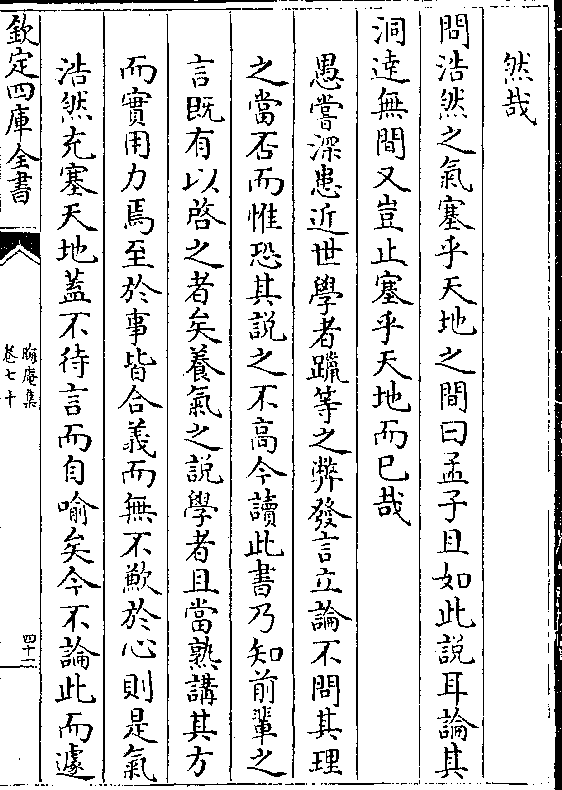 然哉
問浩然之氣塞乎天地之間曰孟子且如此說耳論其
洞達無間又豈止塞乎天地而已哉
愚嘗深患近世學者躐等之弊發言立論不問其理
之當否而惟恐其說之不高今讀此書乃知前輩之
言既有以啓之者矣養氣之說學者且當熟講其方
而實用力焉至於事皆合義而無不歉於心則是氣
浩然充塞天地蓋不待言而自喻矣今不論此而遽
欽定四庫全書
晦庵集
卷七十
四十二